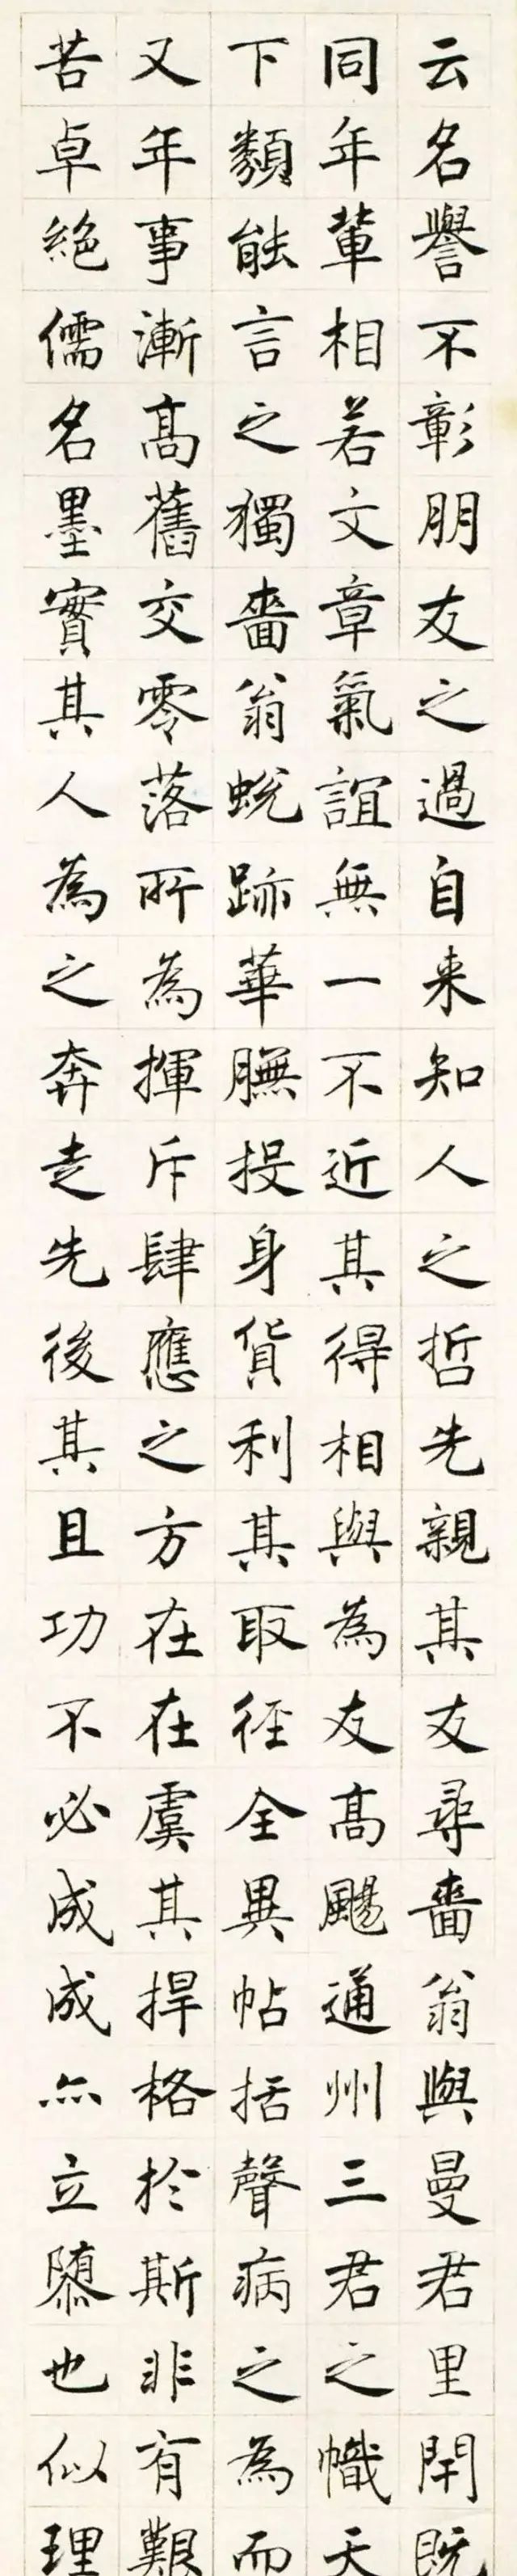 云名譽不彰朋友之過自来知人之哲先親其友尋嗇翁與曼君里閈既
同年輩相若文章氣誼無一不近其得相與為友高颺通州三君之幟天
下類能言之獨嗇翁蛻跡華膴投身貨利其取徑全異帖括聲病之為而
又年事漸高舊交零落所為揮斥肆應之方在在虞其捍格於斯非有艱
苦卓絕儒名墨實其人為之奔走先後其且功不必成成亦立隳也似理